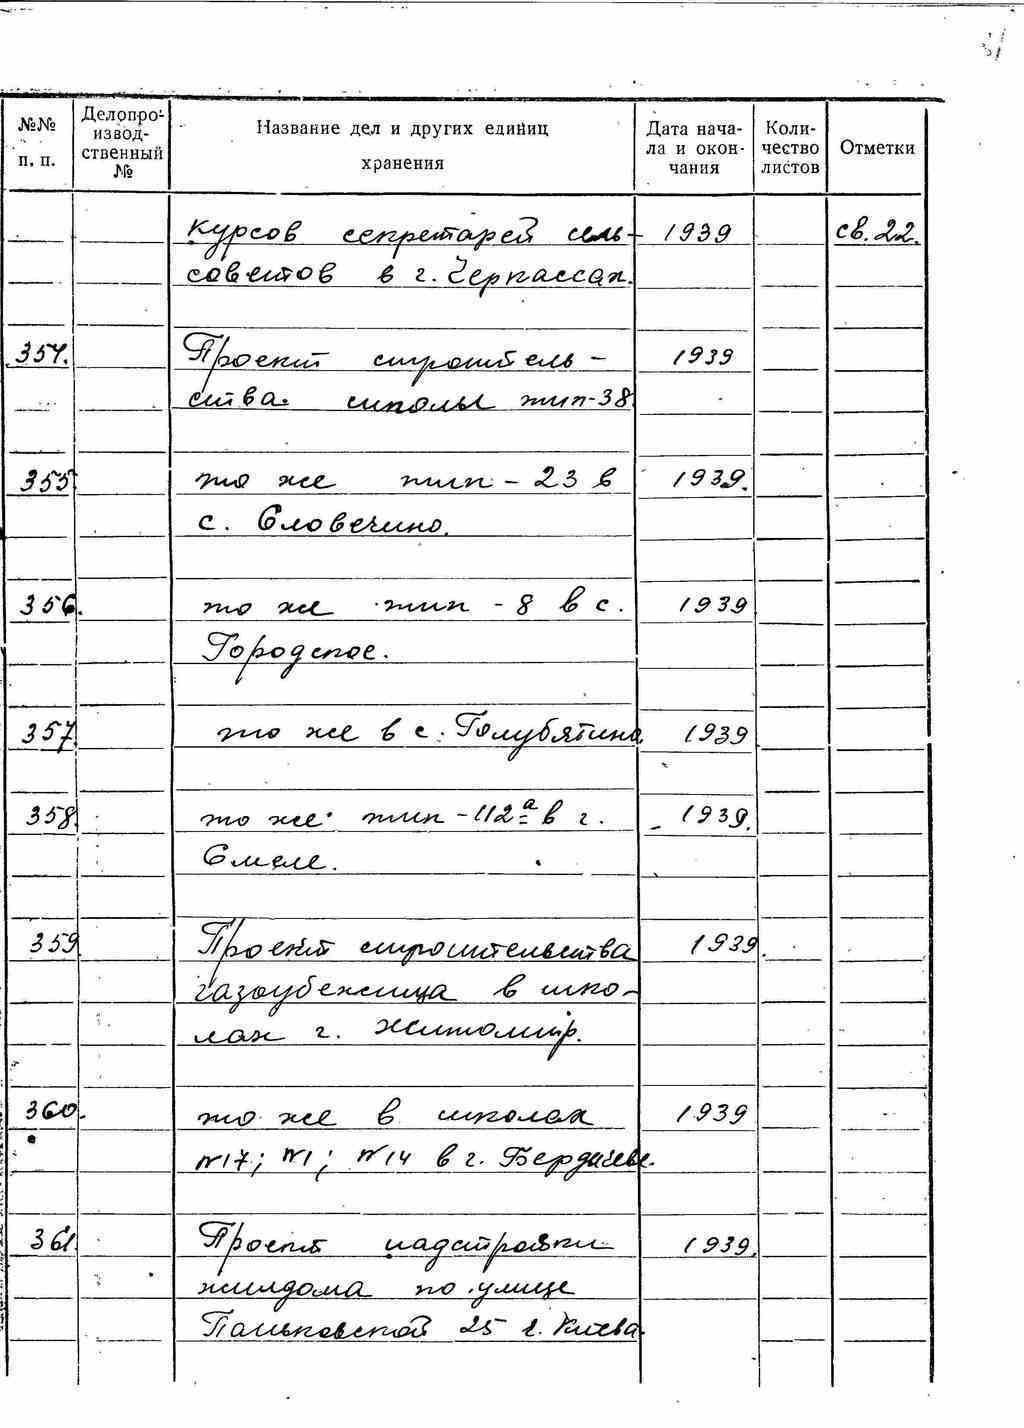 №№ п. п.
Делопроизводственный №
Название дел и других единиц хранения
Дата начала и окончания
Количество листов
Отметки
курсов секретарей сель- 1939 св. 22.
советов в г. Черкассах.
354. Проект строитель- 1939
ства школы тип-38.
355 то же тип-23 в 1939.
с. Словечино.
356. то же тип-8 в с. 1939
Городское.
357. то же в с. Голубятино 1939
358. то же тип-112а в г. 1939.
Смеле.
359. Проект строительства 1939.
газоубежища в шко-
лах г. Житомир.
360. то же в школах 1939
№17; №1; №14 в г. Бердичеве.
361. Проект надстройки 1939.
жилдома по улице
Паньковской 25 г. Киева.